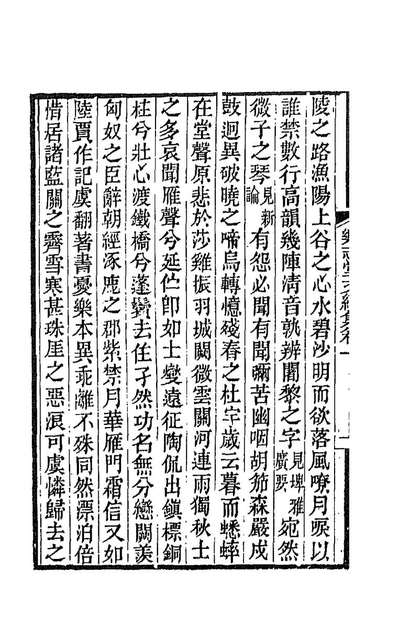 陵之路漁陽上谷之心水碧沙明而欲落風嘹月唳以
誰禁數行高韻幾陣清音孰辨闍黎之字見埤雅廣要宛然
微子之琴見新論有怨必聞有聞彌苦幽咽胡笳森嚴戍
鼓迥異破曉之啼烏轉憶殘春之杜宇歲云暮而蟋蟀
在堂聲原悲於莎雞振羽城闕微雲關河連雨獨秋士
之多哀聞雁聲兮延佇即如士燮遠征陶侃出鎮標銅
柱兮壯心渡鐵橋兮蓬鬢去住孑然功名無分戀闕羨
匈奴之臣辭朝經涿鹿之郡紫禁月華雁門霜信又如
陸賈作記虞翻著書憂樂本異乖離不殊同然漂泊倍
惜居諸藍關之霽雪寒甚珠厓之惡浪可虞憐歸去之